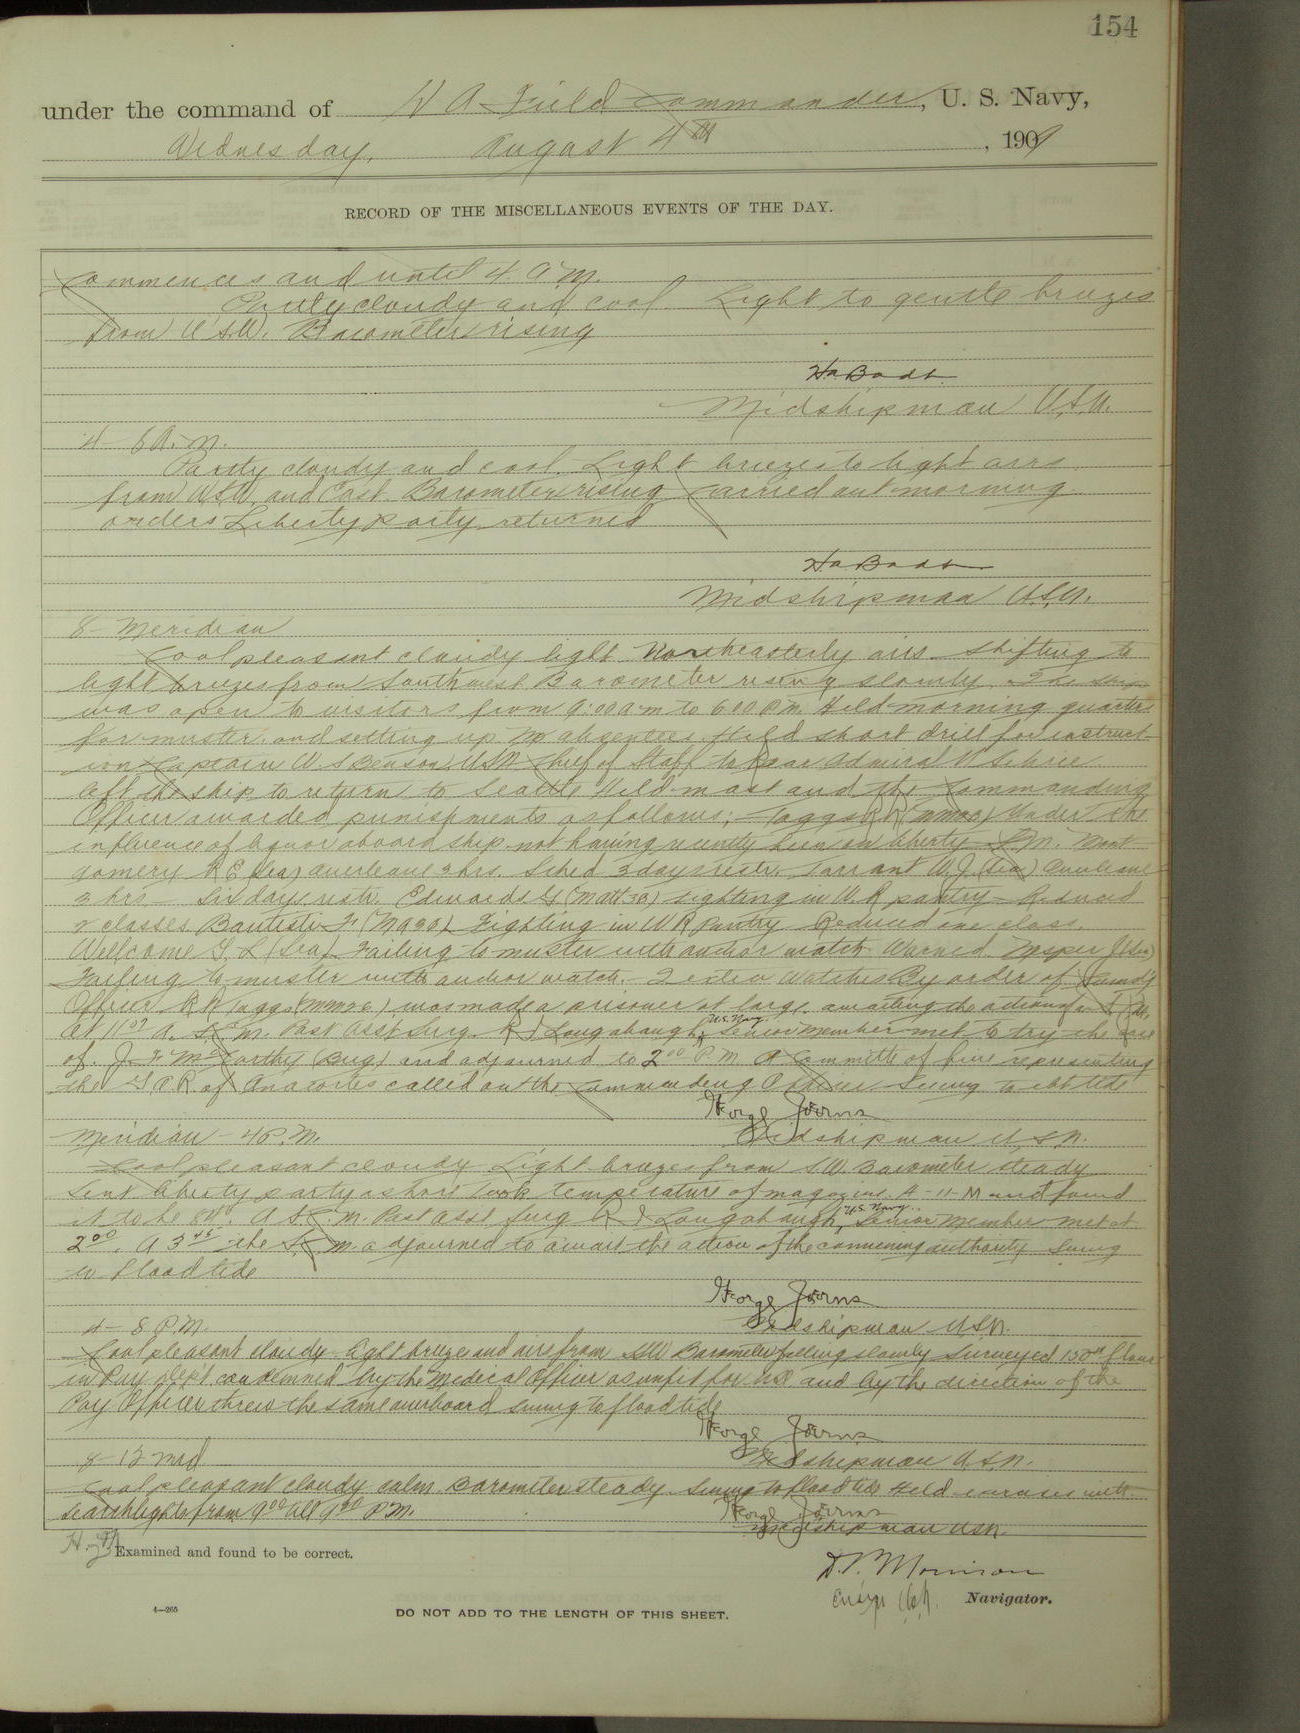 154
under the command of W A Field Commander, U. S. Navy,
Wednesday, August 4th, 1909
RECORD OF THE MISCELLANEOUS EVENTS OF THE DAY.
Commences and until 4 A M.
Partly cloudy and cool. Light to gentle breezes
from W.S.W. Barometer rising
Midshipman U.S.N.
4 - 8 A. M.
Partly cloudy and cool. Light breezes to light airs
from W.S.W. and East. Barometer rising Carried out morning
orders Liberty party returned
Midshipman U.S.N.
8 - Meridian
Cool pleasant cloudy light Northeasterly airs shifting to
light breezes from Southwest Barometer rising slowly. The ship
was open to visitors from 9:00 a m to 6:00 P.m. Held morning quarters
for muster and setting up no absentees Held short drill for instruct-
ion Captain W. S Benson, USN Chief of Staff to Rear Admiral
left the ship to return to Seattle Held mast and the Commanding
Officer awarded punishments as follows; Taggs R R (mm2c) Under the
influence of liquor aboard ship not having recently been on liberty Mont-
gomery R E (Sea) overleave 2 hrs. Sched 3 days restr. Tarrant W. J. (Sea) Overleave
3 hrs - Six days restr. Edwards G (Matt 3c) Fighting in W R pantry - Reduced
2 classes Bautisti F (Ma 2c) Fighting in W R Pantry Reduced one class.
Wellcome G. L (Sea) Failing to muster with anchor watch Warned J (Sea)
Failing to muster with anchor watch - 2 extra Watches By order of Comd'g
Officer R R Taggs (mm2c) was made a prisoner at large awaiting the action of a
At 11 00 A. S.C.M. Past Asst Surg. R J Longabaugh, U.S. Navy Senior Member met to try the case
of J. F McCarthy (Bug) and adjourned to 2 00 P. M. A Committee of five representing
the G A R of Anacortes called on the Commanding Officer Swung to ebb tide
Midshipman U.S.N.
Meridian - 4 P.M.
Cool pleasant cloudy Light breezes from S.W. Barometer steady
Sent liberty party ashore Took temperature of magazine A-11-M and found
it to be 84°. A S.C.M. Past Asst Surg R J Longabaugh, U.S. Navy Senior Member met at
2 00. A 3 45 the S.C.M. adjourned to await the action of the convening authority Swung
to flood tide
Midshipman U.S.N.
4 - 8 P.M.
Cool pleasant cloudy light breeze and airs from SW Barometer falling slowly Surveyed 150 lbs flour
in Pay dep't condemned by the Medical Officer as unfit for use and by the direction of the
Pay Officer threw the same overboard swung to flood tide
Midshipman U.S.N.
8 - 12 Mid
Cool pleasant cloudy calm Barometer steady Swung to flood tide Held exercises with
searchlights from 9 00 till 9 30 P.M.
Midshipman USN.
Examined and found to be correct.
D. P. Morrison
Ensign U.S.N. Navigator.
4—265
DO NOT ADD TO THE LENGTH OF THIS SHEET.